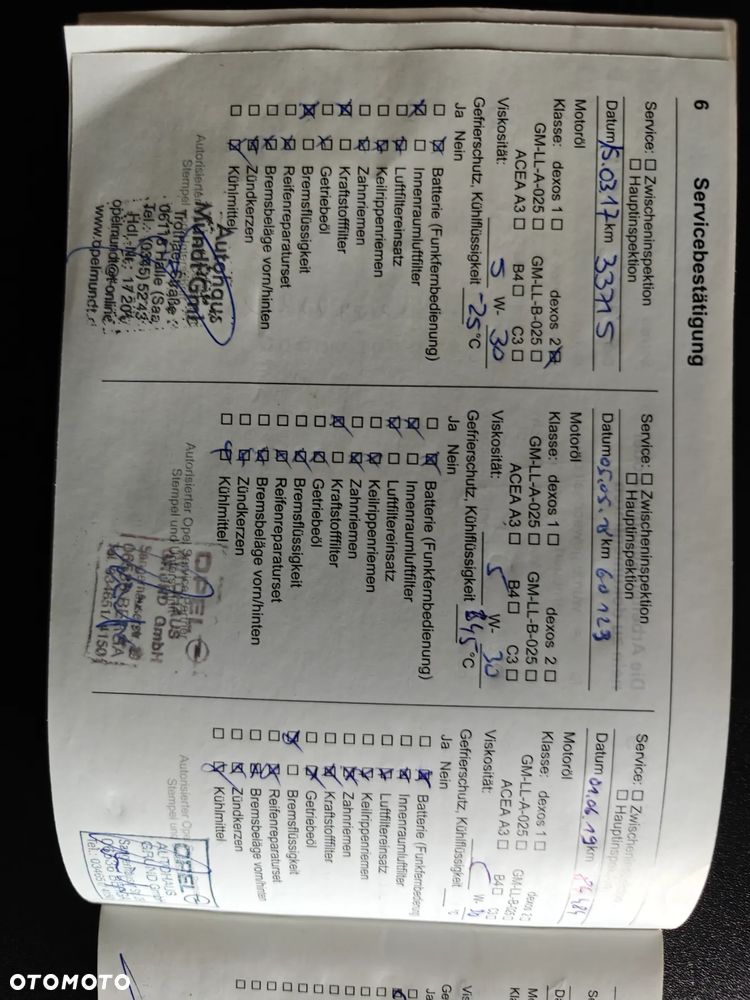 6 Servicebestätigung
Service: □ Zwischeninspektion
□ Hauptinspektion
Datum 15.03.17 km 33715
Motoröl
Klasse: dexos 1 □ dexos 2 ☒
GM-LL-A-025 □ GM-LL-B-025 □
ACEA A3 □ B4 □ C3 □
Viskosität: 5 W- 30
Gefrierschutz, Kühlflüssigkeit -25 °C
Ja Nein
□ ☒ Batterie (Funkfernbedienung)
☒ □ Innenraumluftfilter
□ ☒ Luftfiltereinsatz
□ ☒ Keilrippenriemen
□ ☒ Zahnriemen
☒ □ Kraftstofffilter
□ ☒ Getriebeöl
☒ □ Bremsflüssigkeit
□ ☒ Reifenreparaturset
□ ☒ Bremsbeläge vorn/hinten
□ ☒ Zündkerzen
□ ☒ Kühlmittel
Autorisierter
Stempel
Autohaus
Mundt GmbH
Trothaer Straße
06118 Halle (Saa
Tel.: (0345) 52 43
Hdl.-Nr.: 17 204
opelmundt@t-online
www.opelmundt.
Service: □ Zwischeninspektion
□ Hauptinspektion
Datum 05.05.18 km 60123
Motoröl
Klasse: dexos 1 □ dexos 2 □
GM-LL-A-025 □ GM-LL-B-025 □
ACEA A3 □ B4 □ C3 □
Viskosität: 5 W- 30
Gefrierschutz, Kühlflüssigkeit 45 °C
Ja Nein
□ ☒ Batterie (Funkfernbedienung)
☒ □ Innenraumluftfilter
☒ □ Luftfiltereinsatz
□ ☒ Keilrippenriemen
□ ☒ Zahnriemen
☒ □ Kraftstofffilter
□ ☒ Getriebeöl
□ ☒ Bremsflüssigkeit
□ ☒ Reifenreparaturset
□ ☒ Bremsbeläge vorn/hinten
□ ☒ Zündkerzen
□ ☒ Kühlmittel
Autorisierter Opel Service
Stempel und
OPEL
GmbH
Service: □ Zwischeninspektion
□ Hauptinspektion
Datum 01.06.19 km 84484
Motoröl
Klasse: dexos 1 □ dexos 2 □
GM-LL-A-025 □ GM-LL-B-025 □
ACEA A3 □ B4 □
Viskosität: W- 30
Gefrierschutz, Kühlflüssigkeit °C
Ja Nein
□ ☒ Batterie (Funkfernbedienung
□ ☒ Innenraumluftfilter
□ ☒ Luftfiltereinsatz
□ ☒ Keilrippenriemen
□ ☒ Zahnriemen
□ ☒ Kraftstofffilter
□ ☒ Getriebeöl
☒ □ Bremsflüssigkeit
□ ☒ Reifenreparaturset
□ ☒ Bremsbeläge vorn/hinten
□ ☒ Zündkerzen
□ ☒ Kühlmittel
Autorisierter Ope
Stempel un
OPEL
AUTOHAUS
GRUND GmbH
OTOMOTO